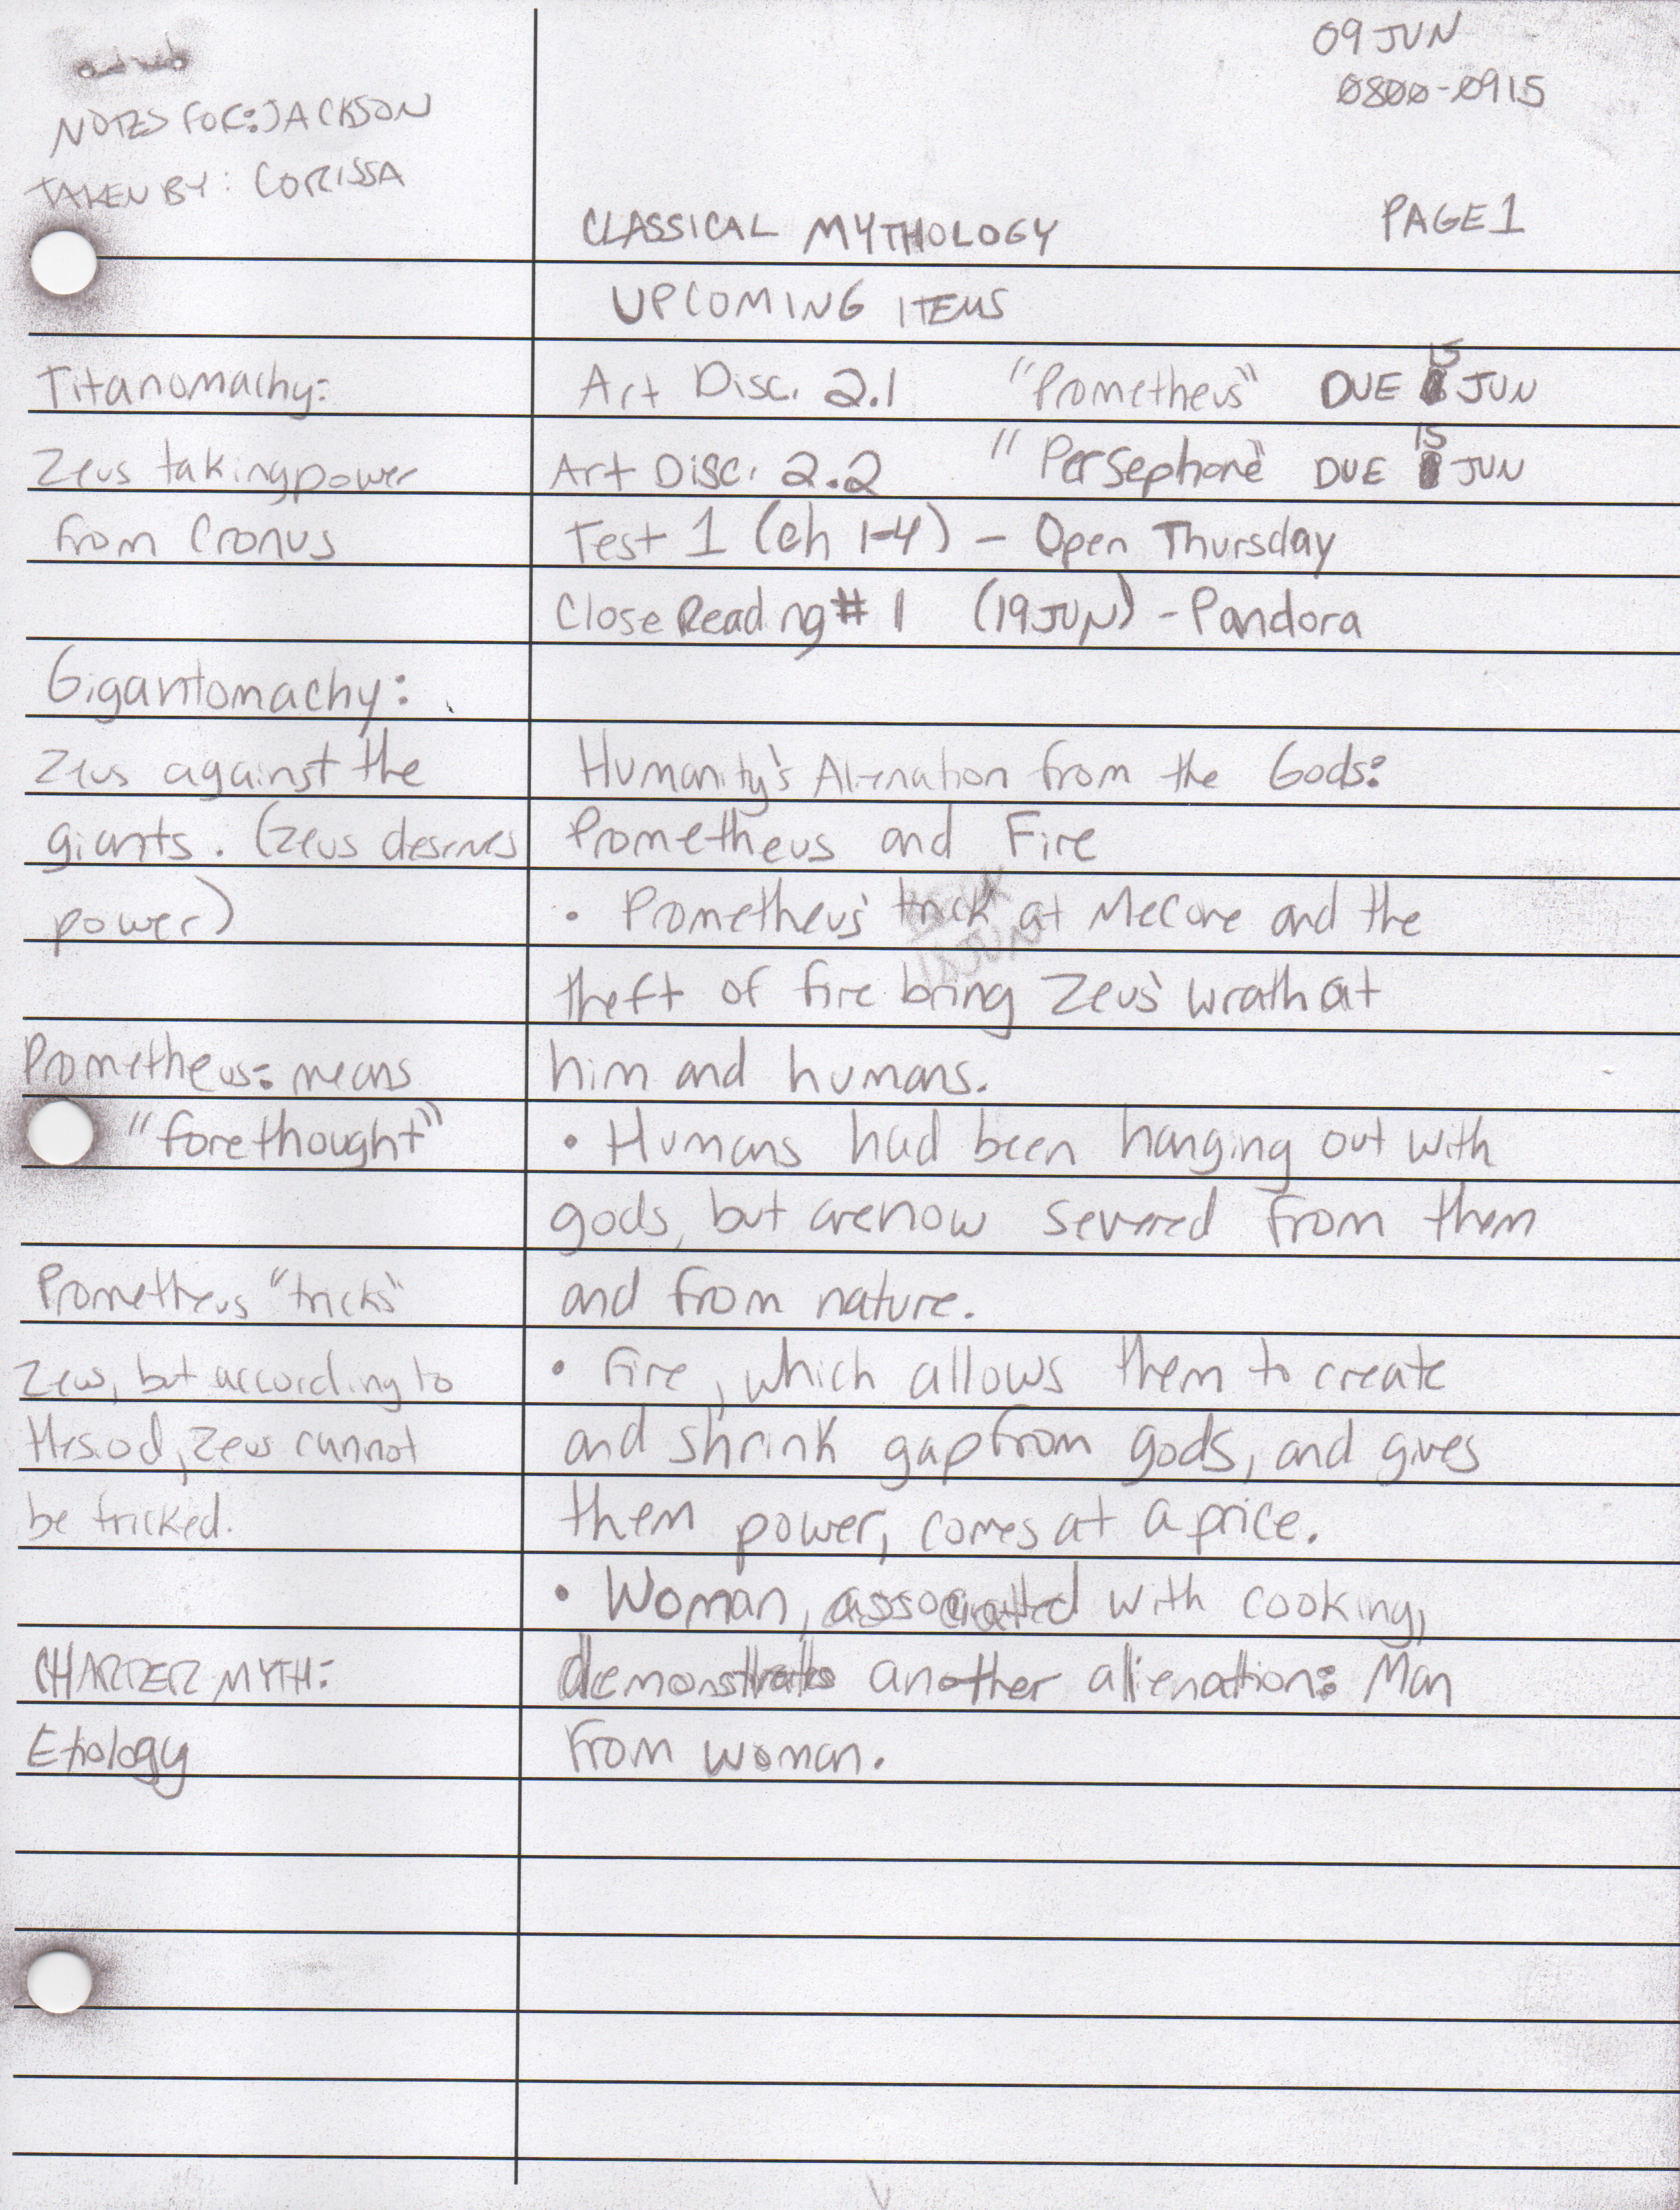 09 JUN
0800-0915
NOTES FOR: JACKSON
TAKEN BY: CORISSA
CLASSICAL MYTHOLOGY
PAGE 1
UPCOMING ITEMS
Titanomachy:
Zeus taking power
from Cronus
Gigantomachy:
Zeus against the
giants. (Zeus deserves
power)
Prometheus: means
"forethought"
Prometheus "tricks"
Zeus, but according to
Hesiod, Zeus cannot
be tricked.
CHARTER MYTH:
Etiology
Art Disc. 2.1 "Prometheus" DUE 15 JUN
Art Disc. 2.2 "Persephone" DUE 15 JUN
Test 1 (ch 1-4) - Open Thursday
Close Reading #1 (19 JUN) - Pandora
Humanity's Alienation from the Gods:
Prometheus and Fire
• Prometheus' trick at Mecone and the
theft of fire bring Zeus' wrath at
him and humans.
• Humans had been hanging out with
gods, but are now severed from them
and from nature.
• Fire, which allows them to create
and shrink gap from gods, and gives
them power, comes at a price.
• Woman, associated with cooking,
demonstrates another alienation: Man
from woman.